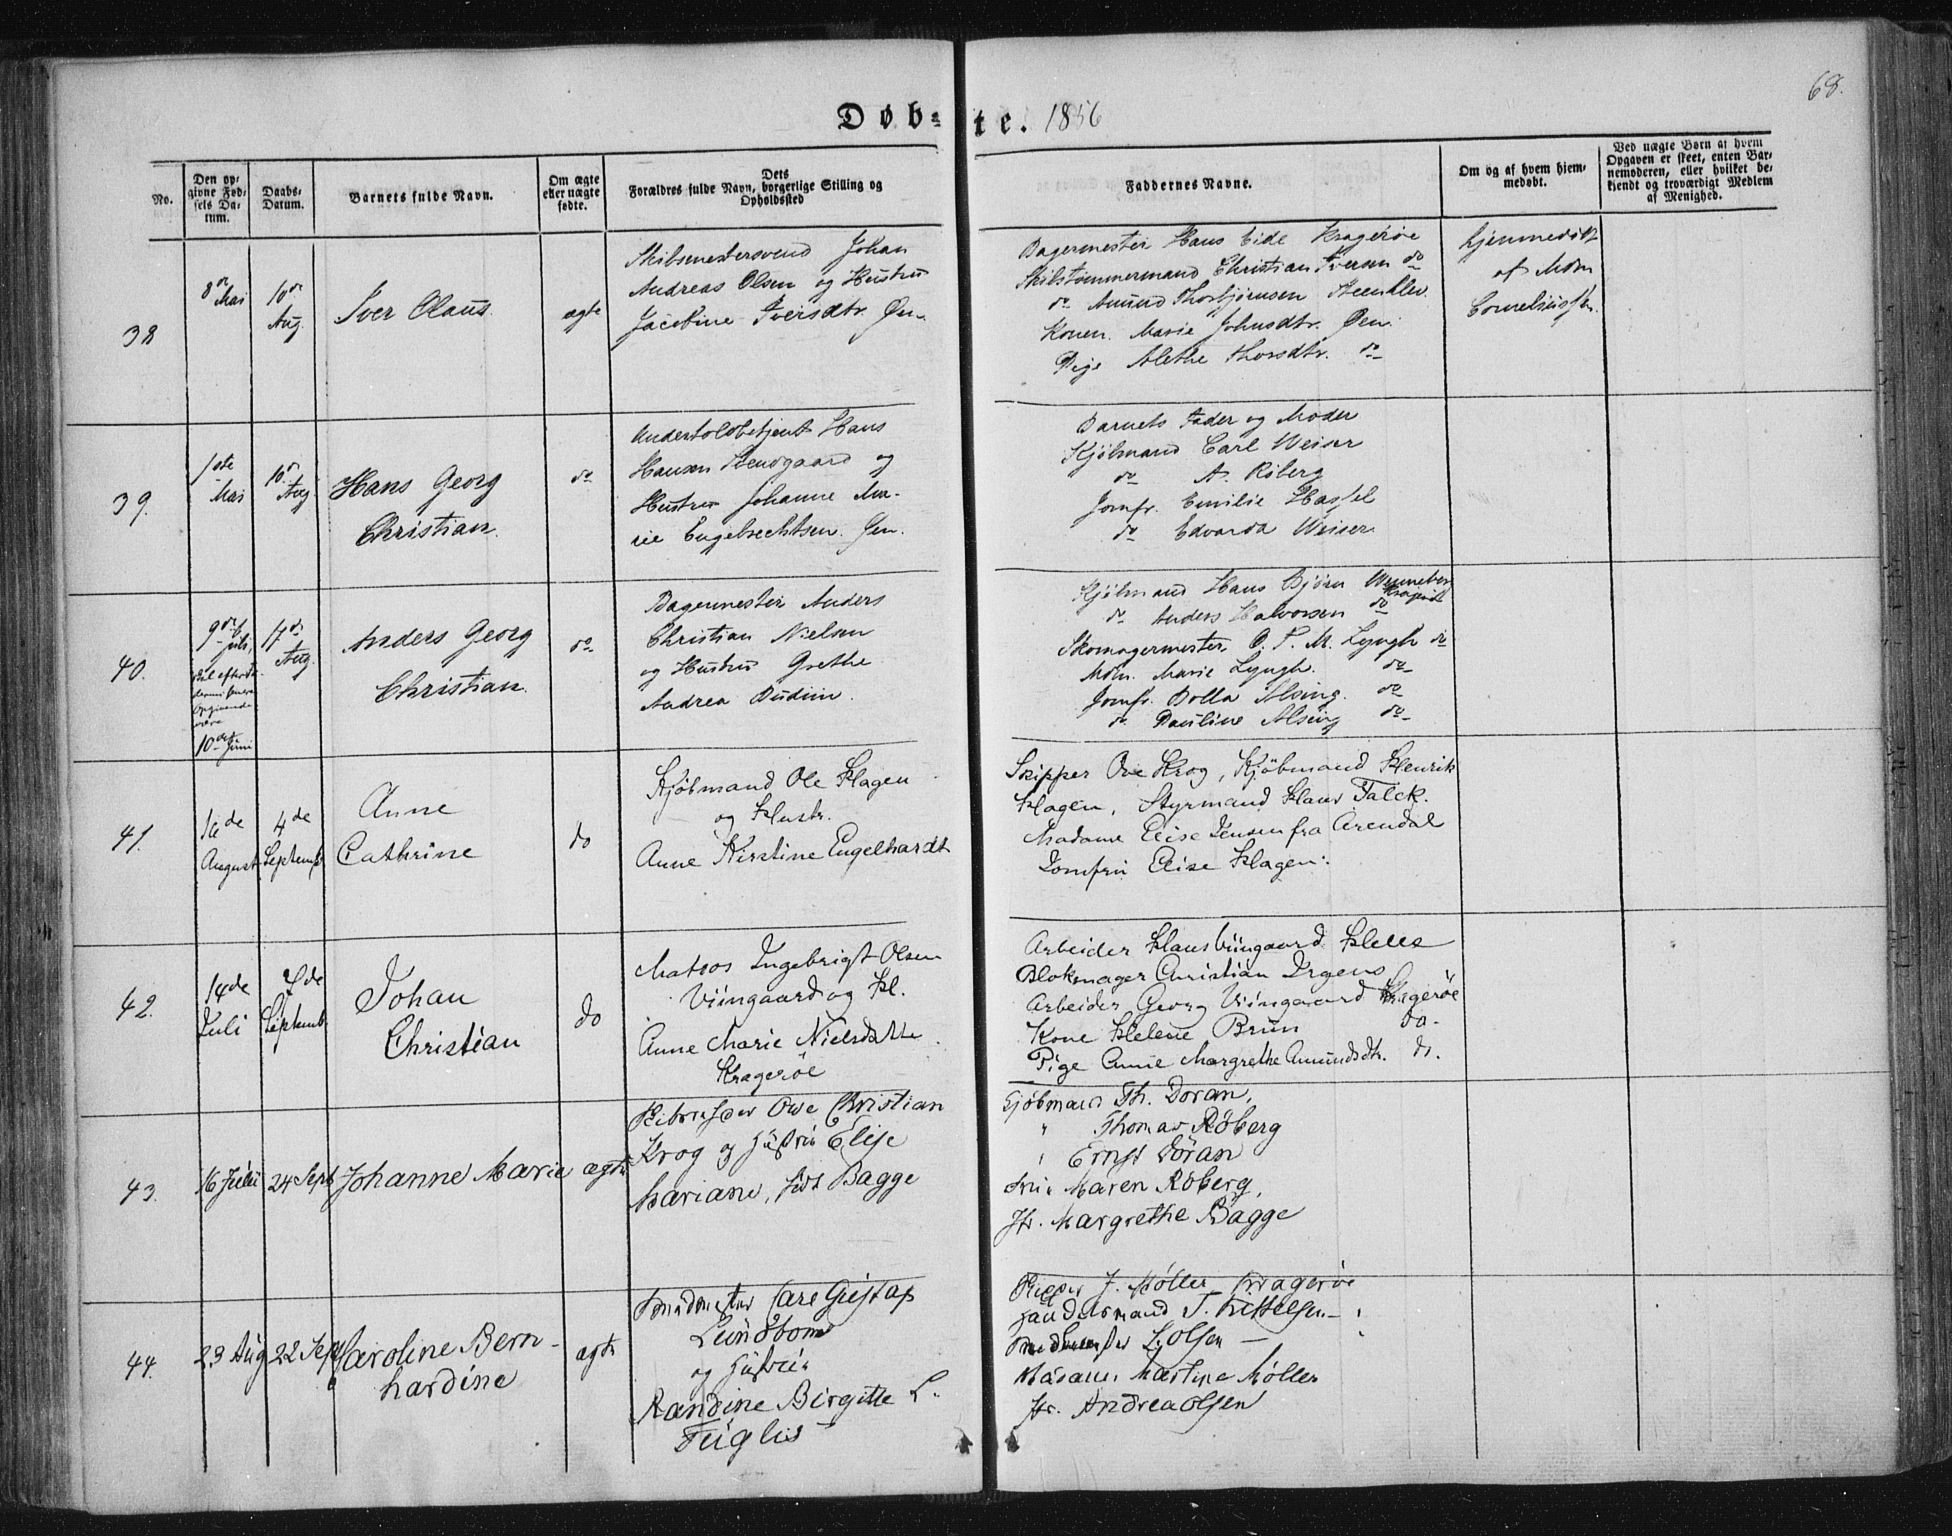 68.
Døb-te. 1856
No.
Den op-
givne Fød-
sels Da-
tum.
Daabs-
Datum.
Barnets fulde Navn.
Om ægte
eller uægte
fødte.
Dets
Forældres fulde Navn, borgerlige Stilling og
Opholdssted
Faddernes Navne.
Om og af hvem hjem-
medøbt.
Ved uægte Børn af hvem
Opgaven er skeet, enten Bar-
nemoderen, eller hvilket be-
kjendt og troværdigt Medlem
af Menighed.
38
8de
Mai
10de
Aug.
Iver Claus
ægte
Skibsmestersvend Johan
Andreas Olsen og Hustru
Jacobine Iversdtr. Øen
Bagermester Hans Eide Kragerøe
Skibstømmermand Christian Iversen do
do Amund Thorbjørnsen
Konen Marie Johnsdtr. Øen
Pige Alethe Thorsdtr. do
hjemmedøbt
af Mdm
39.
1ste
Mai
10de
Aug
Hans Georg
Christian.
do
Undertoldbetjent Hans
Hansen Steensgaard og
Hustru Johanne Ma-
rie Engebrechtsen. Øen.
Barnets Fader og Moder
Kjøbmand Carl Weiser
do A. Riberg
Jomfr. Emilie Hassel
do Edvarda Weiser
40.
9de
Juli,
10de Juni
17de
Aug.
Anders Georg
Christian.
do
Bagermester Anders
Christian Nielsen
og Hustru Grethe
Andrea
Kjøbmand Hans Bjørn
Kragerøe
do Anders Halvorsen do
Skomagermester O. T. M. Lyngh do
Mdm. Marie Lyngh. do
Jomfr. Bolla Alsing. do
do Pauline Alsing do
41.
16de
August
4de
Septemb
Anne
Cathrine
do
Kjøbmand Ole Hagen
og Hustr.
Anne Kirstine Engelhardt
Skipper Ove Krog, Kjøbmand Henrik
Hagen, Styrmand Hans Falck.
Madame Elise Jensen fra Arendal
Jomfru Elise Hagen.
42.
14de
Juli
7de
Septemb
Johan
Christian
do
Matros Ingebrigt Olsen
Viingaard og H.
Anne Marie Nielsdatter
Kragerøe
Arbeider Hans Viingaard Helle
Blokmager Christian Irgens
Arbeider Georg Viingaard Kragerøe
Kone Helene Brun do.
Pige Anne Margrethe Amundsdtr. do.
43.
16 Juli
24 Sept
Johanne Marie
ægte
Ove Christian
Krog og Hustru Elise
Mariane, født Bagge
Kjøbmand Th. Doran,
" Thomas Røberg
" Ernst Doran
Fru Maren Røberg,
Jfr. Margrethe Bagge
44.
23 Aug
22 Sept
Caroline Bern-
hardine
ægte
Carl Gustaf
Lundbom
og Hustru
Randine Birgitte L.
J. Møller Kragerøe
Handelsmand T. Kittelsen
L. Olsen
Madame Martine Møller
Jfr. Andrea Olsen